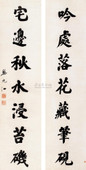 吟處落花藏筆硯
宅邊秋水浸苔磯